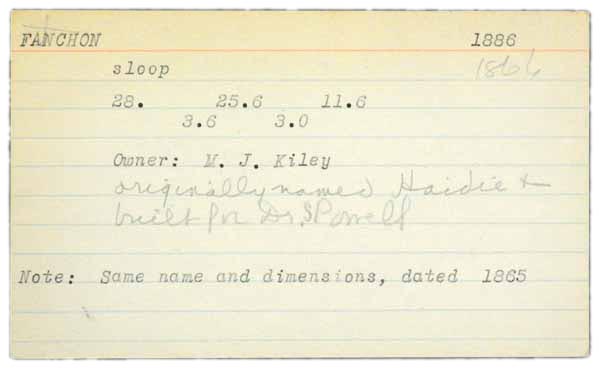 FANCHON 1886
sloop 1866
28. 25.6 11.6
3.6 3.0
Owner: M. J. Kiley
originally named Haidie &
built for Dr. S Powell
Note: Same name and dimensions, dated 1865